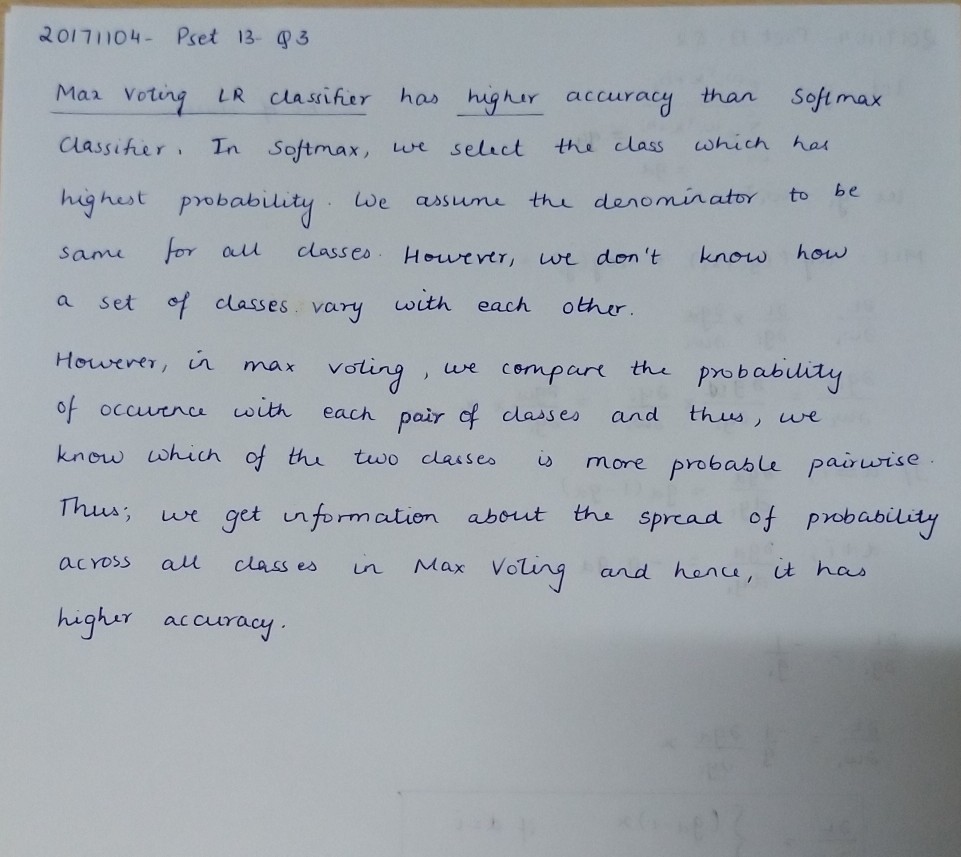 20171104- Pset 13- Q3
Max Voting LR classifier has higher accuracy than Softmax
Classifier. In Softmax, we select the class which has
highest probability. We assume the denominator to be
same for all classes. However, we don't know how
a set of classes vary with each other.
However, in max voting, we compare the probability
of occurence with each pair of classes and thus, we
know which of the two classes is more probable pairwise.
Thus, we get information about the spread of probability
across all classes in Max Voting and hence, it has
higher accuracy.